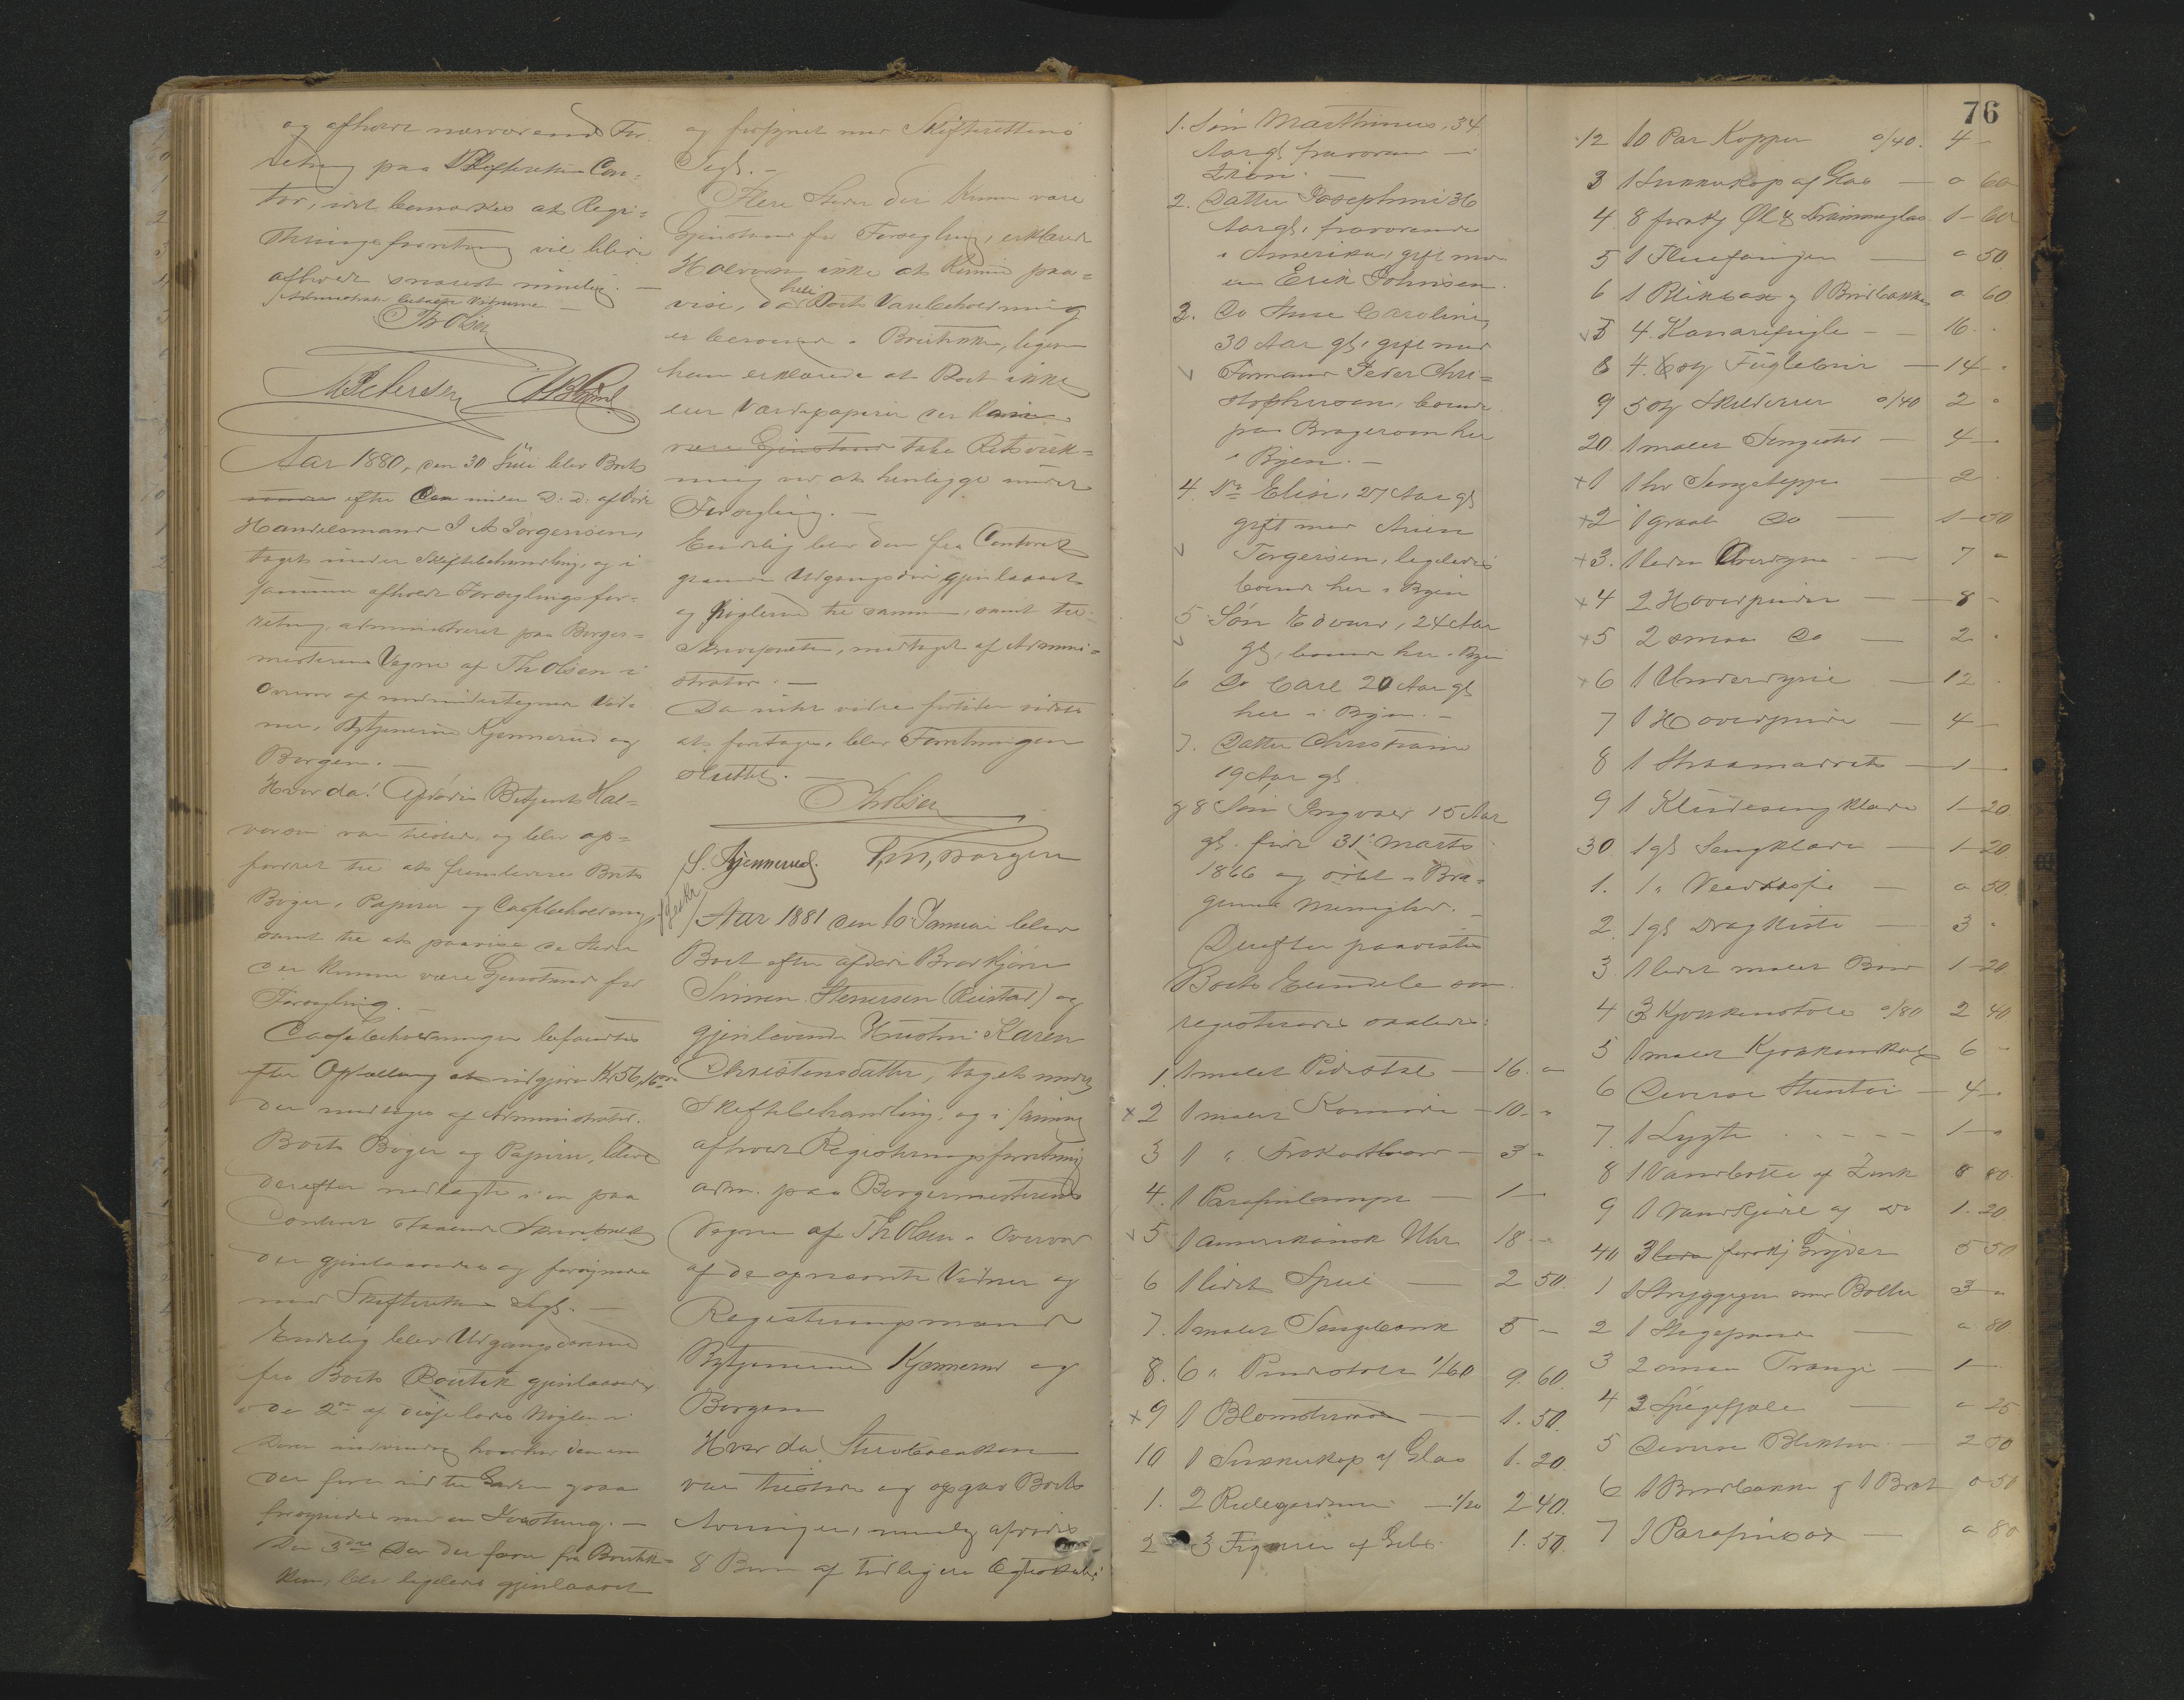 og afholdt nærværende For-
retning paa Skifterettens Con-
tor, idet bemærkes at Regi-
streringsforretning vil blive
afholdt snarest muligt. —
Administrator betalte Vidnerne —
Th Olsen
M Petersen
Aar 1880, den 30 Juli blev Boet
efter den under D. D. afdøde
Handelsmand J A Jorgensen,
taget under Skiftebehandling, og i
samme afholdt Forseglingsfor-
retning, administreret paa Borger-
mesterens Vegne af Th Olsen i
Overvær af medundertegnede Vid-
ner, Bytjenerne Kjennerud og
Borgen. —
Hvor da: Afdødes Betjent Hal-
vorsen var tilstede, og blev op-
fordret til at fremlevere Boets
Bøger, Papirer og Cassebeholdning
samt til at paavise de Steder
der kunne være Gjenstand for
Forsegling.
Cassebeholdningen befandtes
efter Optælling at udgjøre Kr 56,16
der modtoges af Administrator.
Boets Bøger og Papirer, blev
derefter nedlagte i en paa
Contoret staaende Skrivepult
der gjenlaasedes og forsynedes
med Skifterettens Segl. —
Endelig blev Udgangsdørene
fra Boets Boutik gjenlaasede
de 2de af disse lodes Nøglen i
Døren indvendig hvorhos den ene
der fører ud til Gaden
forsynedes med en Jernstang. —
Den 3die Dør der fører fra Boutik-
ken, blev ligeledes gjenlaaset
og forsynet med Skifterettens
Segl. —
Flere Steder der kunne være
Gjenstand for Forsegling, erklærede
Halvorsen ikke at kunne paa-
vise, da hele Boets Varebeholdning
er beroende i Boutikken, ligesom
han erklærede at Boet ikke
eier Værdipapirer der kunne
være Gjenstand tabe Retsvirk-
ning ved at henligge under
Forsegling. —
Endelig blev den fra Contoret
gaaende Udgangsdør gjenlaaset
og Nøglerne til samme, samt til
Skrivepulten, modtaget af Admini-
strator. —
Da intet videre fortiden vidstes
at foretage, blev Forretningen
sluttet. —
Th Olsen
S. Kjennerud. Borgen
Aar 1881 den 10 Januar blev
Boet efter afdøde Brovkjører
Simen Stenersen (Rustad) og
gjenlevende Hustru Karen
Christensdatter, taget under
Skiftebehandling og i samme
afholdt Registreringsforretning
adm. paa Borgermesterens
Vegne af Th Olsen i Overvær
af de opnævnte Vidner og
Registreringsmænd
Bytjenerne Kjennerud og
Borgen
Hvor da: Sterboenken
var tilstede og opgav Boets
Arvinger, nemlig afdødes
8 Børn af tidligere Ægteskab:
76
1. Søn Marthinius, 34
Aar gl. fraværende i
2. Datter Josephine 36
Aar gl, fraværende
i Amerika, gift med
en Erik Johnsen.
3. Do Caroline,
30 Aar gl, gift med
Formand Peder Chri-
stophersen, boende
paa Bragerøen her
i Byen. —
4. Do Elise, 27 Aar gl
gift med
Torgersen, ligeledes
boende her i Byen
5. Søn Edvard, 24 Aar
gl, boende her i Byen
6 Do Carl 20 Aar gl
her i Byen. —
7. Datter Christiane
19 Aar gl.
og 8 Søn Ingvald 15 Aar
gl. født 31 Marts
1866 og døbt i Bra-
gernes Menighed. —
Derefter paavistes
Boets Eiendele som
registreredes saaledes:
1. 1 malet Pidestal — 16. "
x 2 1 malet Komode — 10 - "
3 1 " Frokostbord — 3 "
4. 1 Parafinlampe — 1 —
5 1 amerikansk Uhr 18 —
6 1 lidet Speil — 2 50.
7. 1 malet Sengebænk 5 —
8. 6 " Pindestole 1/60 9. 60.
x 9 1 Blomsterbord — 1. 50.
10 1 Sukkerkop af Glas 1. 20.
1. 2 Rullegardiner — 1/20 2 40.
2 3 Figurer af Gibs. 1. 50.
12 10 Par Kopper 0/40. 4 -
3 1 Sukkerkop af Glas — 0 60
4 8 forskj Øl & Dramglas 1 - 60
5 1 Fluefanger — 0 50
6 1 Blikdaase og 1 Brødbakke 0 60
4 Kanarifugle — 16. .
8 4 Fuglebuer — 14 - .
9 5 Skilderier 0/40 2 "
20. 1 malet Sengested — 4 —
x 1 1 hv Sengeteppe — 2 .
x 2 1 graat Do — 1 - 50
x 3. 1 Overdyne — 7 "
x 4 2 Hovedpuder — 8 -
x 5 2 smaa Do — 2 .
x 6 1 Underdyne — 12 .
7 1 Hovedpude — 4 —
8 1 Straamadrats — 1 —
9 1 Kludesengklæde 1 - 20
30. 1 gl Sengklæde — 1 - 20
1. 1 " Vedkasse — 0 50.
2. 1 gl Dragkiste — 3 "
3. 1 lidet malet Bord 1 - 20
4 3 Kjøkkenstole 0/80 2 40
5 1 malet Kjøkkenskab 6 -
6 Diverse Stentøi — 4 - "
7. 1 Lygte - - - - 1 - "
8 1 Vandbøtte af Zink 0 80.
9 1 Vandkjedel af Do 1. 20
40 3 forskj Gryder 5 50
1 1 Strygejern med Bolter 3 "
2 1 Stegepande — 0 80
3 2 smaa Trauge — 1 —
4 3 Spigefjæle — 0 25
5 Diverse Bliktøi — 2 50
6 1 Brødbakke og 1 Bræt 0 50
7 1 Parafindaase — 0 80